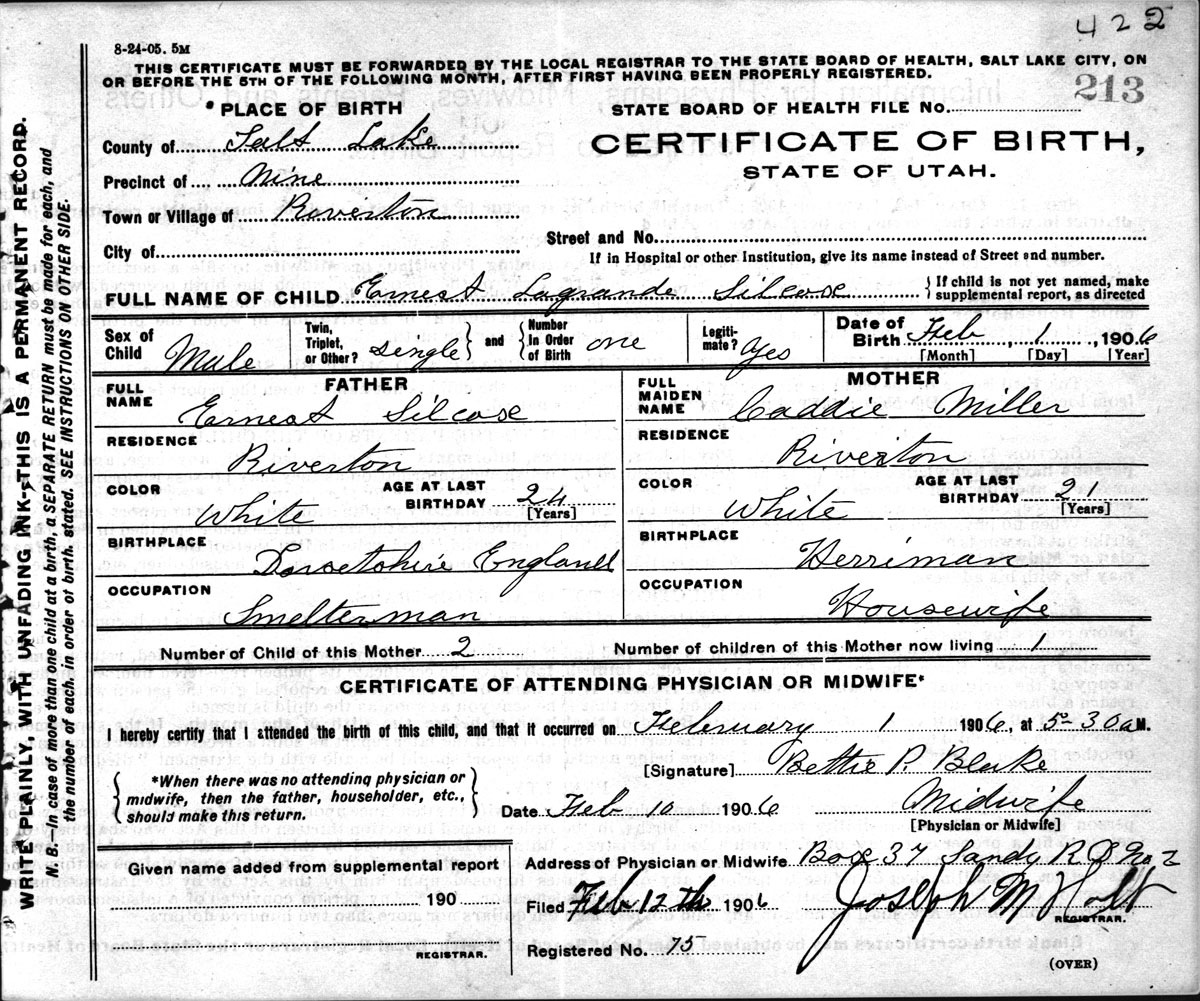 422
8-24-05. 5M
THIS CERTIFICATE MUST BE FORWARDED BY THE LOCAL REGISTRAR TO THE STATE BOARD OF HEALTH, SALT LAKE CITY, ON
OR BEFORE THE 5TH OF THE FOLLOWING MONTH, AFTER FIRST HAVING BEEN PROPERLY REGISTERED.
WRITE PLAINLY, WITH UNFADING INK—THIS IS A PERMANENT RECORD.
N. B.—In case of more than one child at a birth, a SEPARATE RETURN must be made for each, and
the number of each, in order of birth, stated. SEE INSTRUCTIONS ON OTHER SIDE.
*PLACE OF BIRTH
STATE BOARD OF HEALTH FILE No. 213
County of Salt Lake
CERTIFICATE OF BIRTH,
STATE OF UTAH.
Precinct of Nine
Town or Village of Riverton
Street and No.
City of
If in Hospital or other Institution, give its name instead of Street and number.
FULL NAME OF CHILD Ernest Lagrande Silcox
If child is not yet named, make
supplemental report, as directed
Sex of Child Male
Twin, Triplet, or Other? single and Number in Order of Birth one
Legitimate? yes
Date of Birth Feb, 1, 1906
[Month] [Day] [Year]
FATHER
MOTHER
FULL NAME Ernest Silcox
FULL MAIDEN NAME Caddie Miller
RESIDENCE Riverton
RESIDENCE Riverton
COLOR White AGE AT LAST BIRTHDAY 24 [Years]
COLOR White AGE AT LAST BIRTHDAY 21 [Years]
BIRTHPLACE Dorsetshire England
BIRTHPLACE Herriman
OCCUPATION Smelterman
OCCUPATION Housewife
Number of Child of this Mother 2
Number of children of this Mother now living 1
CERTIFICATE OF ATTENDING PHYSICIAN OR MIDWIFE*
I hereby certify that I attended the birth of this child, and that it occurred on February 1 1906, at 5-30 a M.
*When there was no attending physician or
midwife, then the father, householder, etc.,
should make this return.
[Signature] Bettie P. Blake
Date Feb 10 1906 Midwife
[Physician or Midwife]
Given name added from supplemental report
190
REGISTRAR.
Address of Physician or Midwife Box 37 Sandy R D No 2
Filed Feb 12th 1906 Joseph M Holt
REGISTRAR.
Registered No. 75
(OVER)